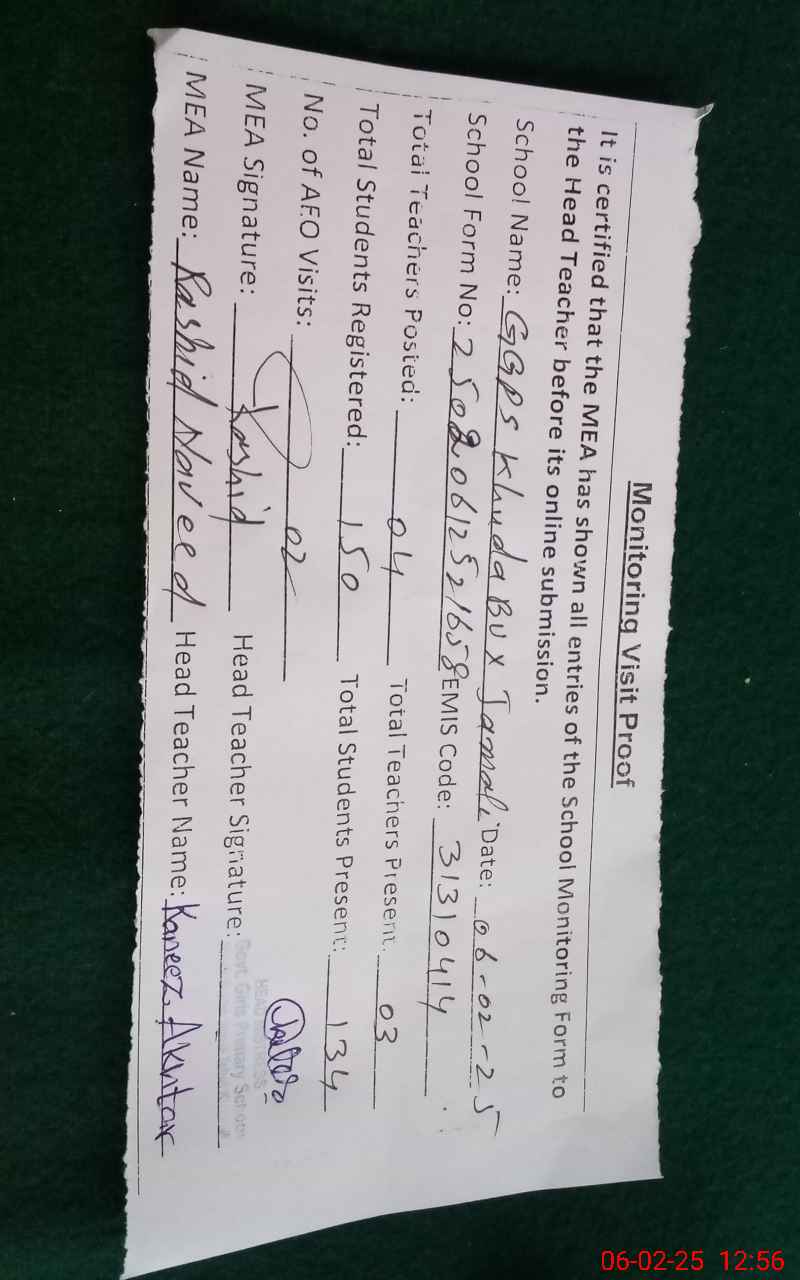 Monitoring Visit Proof
It is certified that the MEA has shown all entries of the School Monitoring Form to
the Head Teacher before its online submission.
School Name: GGPS Khuda Bux Jamali Date: 06-02-25
School Form No: 25020612521658 EMIS Code: 31310414
Total Teachers Posted: 04 Total Teachers Present: 03
Total Students Registered: 150 Total Students Present: 134
No. of AEO Visits: 02
MEA Signature: Rashid Head Teacher Signature:
HEAD
Govt. Girls Primary School
MEA Name: Rashid Naveed Head Teacher Name: Kaneez Akhtar
06-02-25 12:56